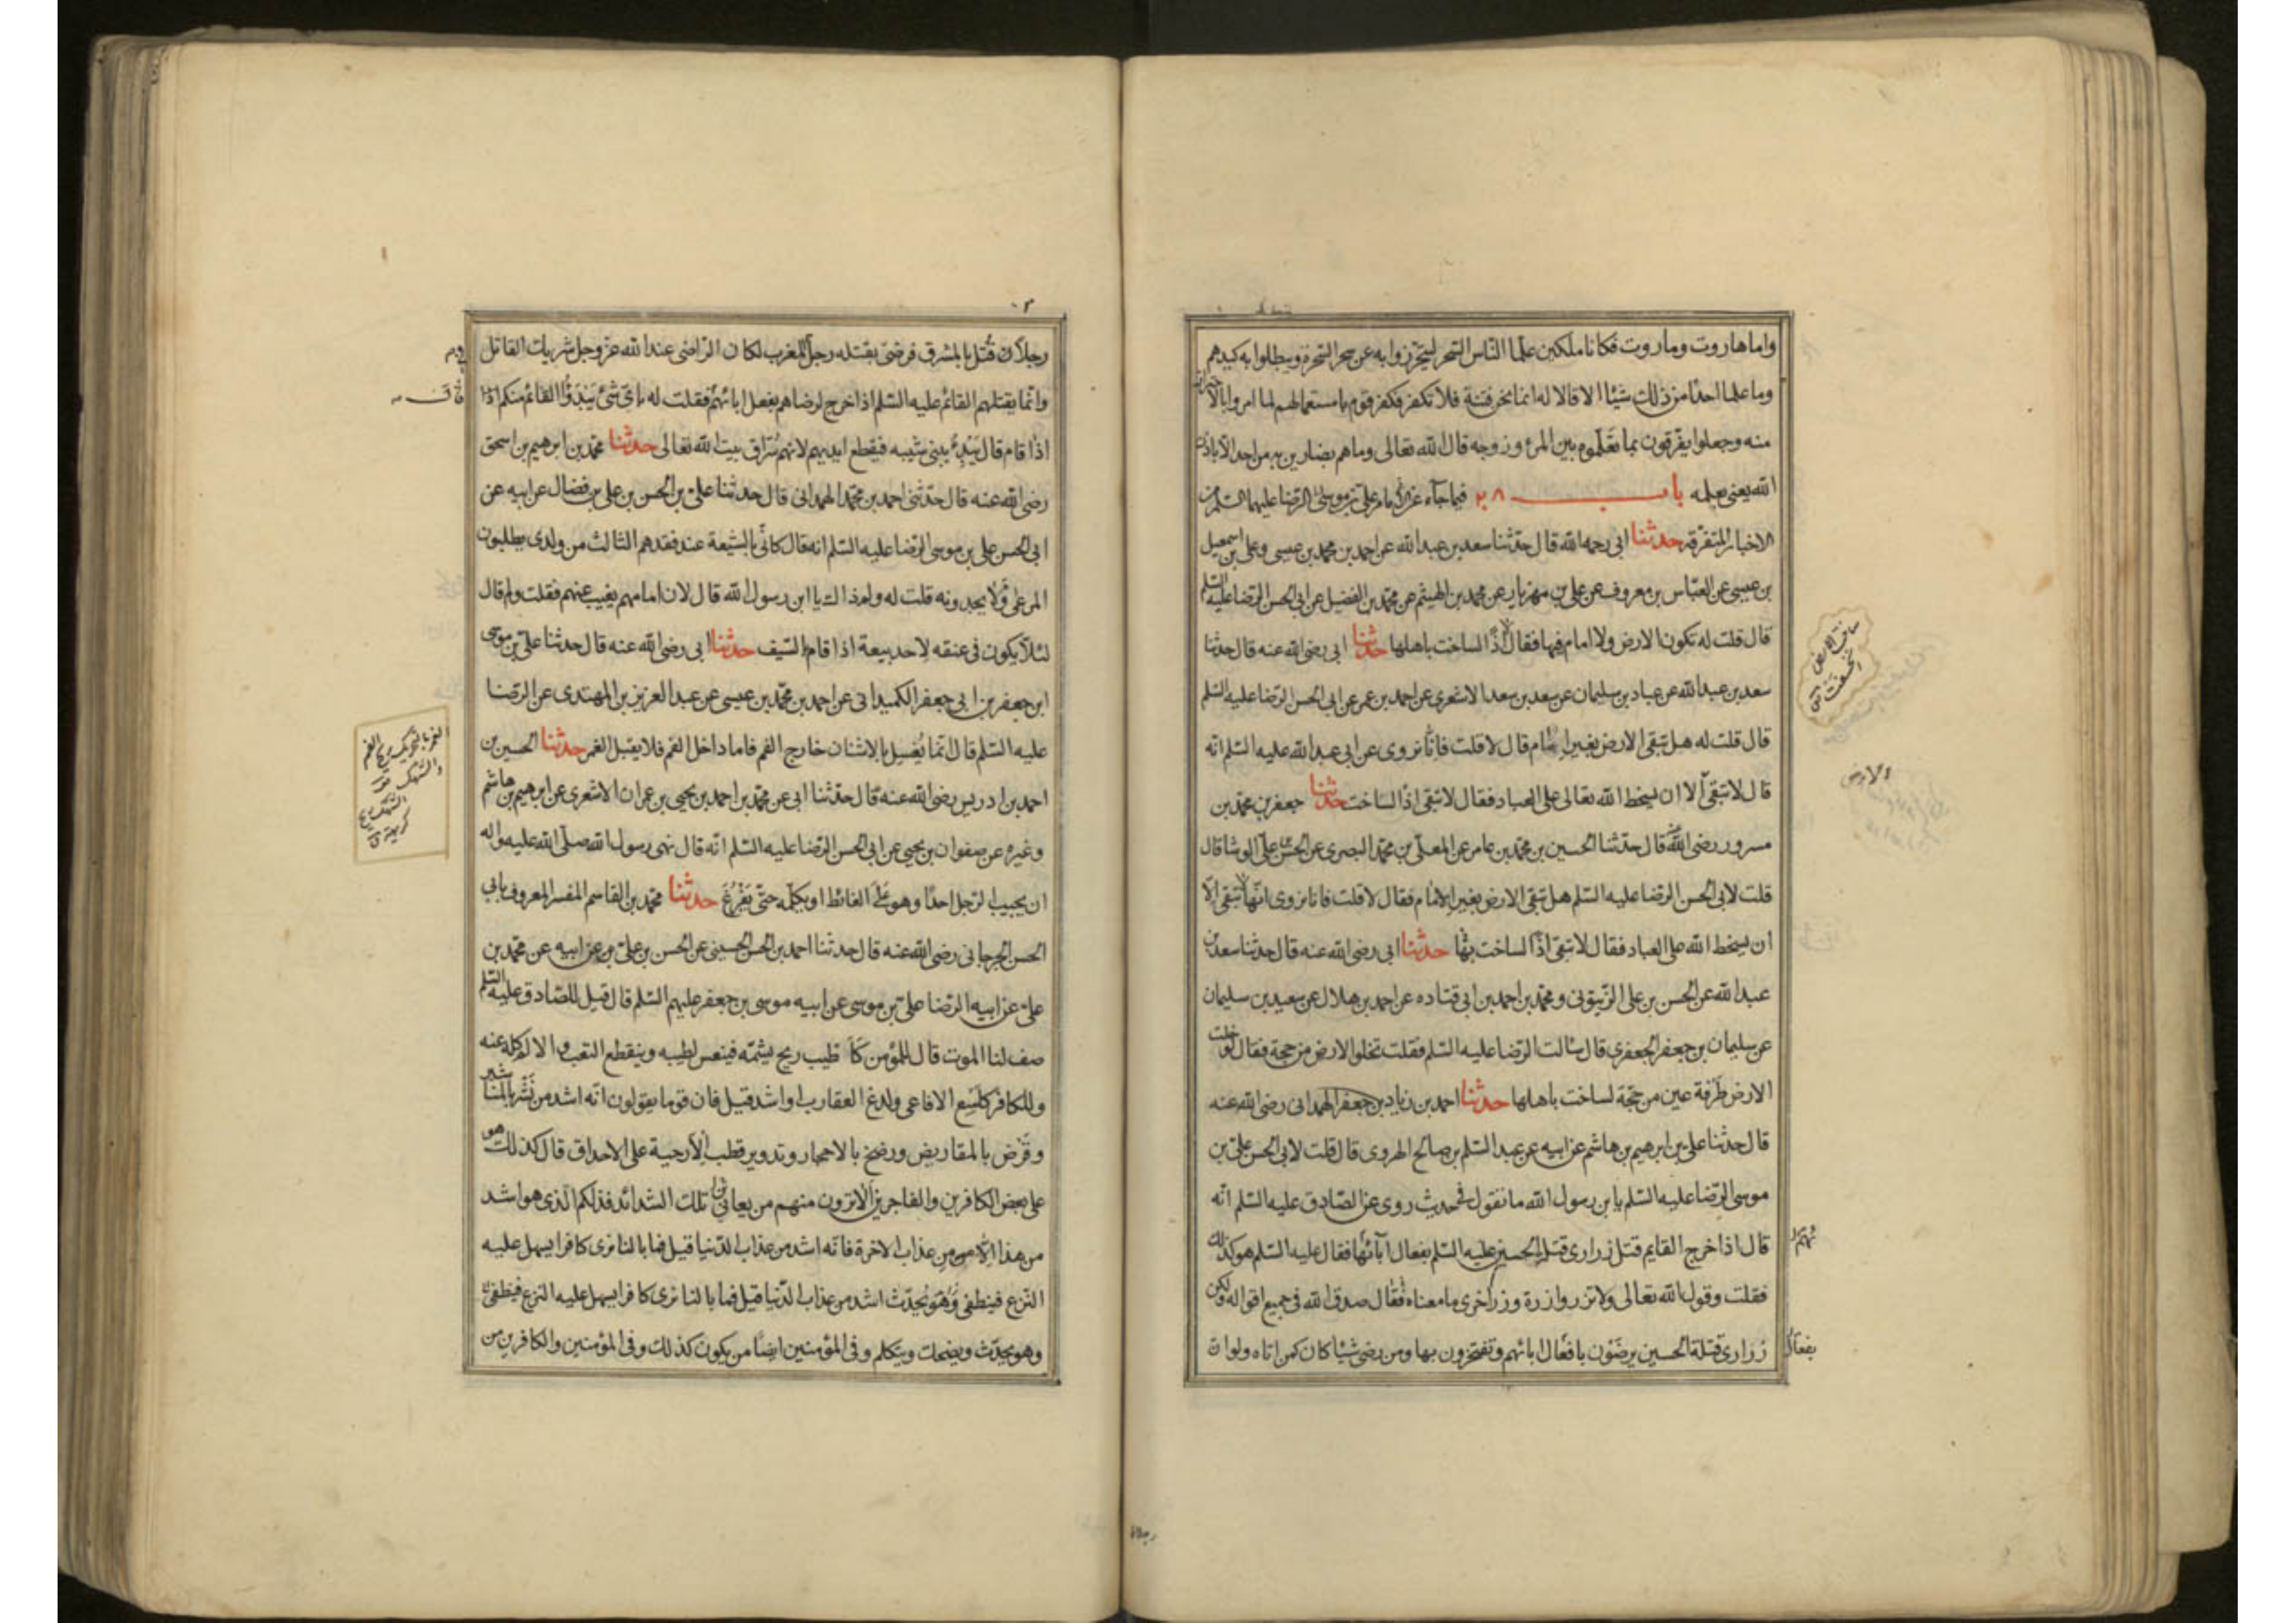 واما هاروت وماروت فكانا ملكين علّما الناس السحر ليتحرّزوا به عن سحر السحرة ويبطلوا به كيدهم
وما علما احدًا من ذلك شيئا الا قالا له انما نحن فتنة فلا تكفر فكفر قوم باستعمالهم لما امروا بالاحتراز
منه وجعلوا يفرّقون بما تعلّموه بين المرء وزوجه قال الله تعالى وما هم بضارين به من احد الا باذن
الله يعنى بعلمه باب ٢٨ فيما جاء عن الامام على بن موسى الرضا عليهما السلم من
الاخبار المتفرقة حدثنا ابى رحمه الله قال حدّثنا سعد بن عبد الله عن احمد بن محمد بن عيسى وعلى بن اسمعيل
بن عيسى عن العبّاس بن معروف عن على بن مهزيار عن محمد بن الهيثم عن محمّد بن الفضيل عن ابى الحسن الرضا عليه السلم
قال قلت له تكون الارض ولا امام فيها فقال لا اذًا لساخت باهلها حدثنا ابى رضى الله عنه قال حدثنا
سعد بن عبد الله عن عباد بن سليمان عن سعد بن سعد الاشعرى عن احمد بن عمر عن ابى الحسن الرضا عليه السلم
قال قلت له هل تبقى الارض بغير امام قال لا قلت فانّا نروى عن ابى عبد الله عليه السلم انه
قال لا تبقى الا ان يسخط الله تعالى على العباد فقال لا تبقى اذًا لساخت حدثنا جعفر بن محمّد بن
مسرور رضى الله عنه قال حدّثنا الحسين بن محمّد بن عامر عن المعلّى بن محمّد البصرى عن الحسن بن على الوشا قال
قلت لابى الحسن الرضا عليه السلم هل تبقى الارض بغير الامام فقال لا قلت فانا نروى انّها لا تبقى الّا
ان يسخط الله على العباد فقال لا تبقى اذًا لساخت بها حدثنا ابى رضى الله عنه قال حدثنا سعد بن
عبد الله عن الحسن بن على الزيتونى ومحمّد بن احمد بن ابى قتاده عن احمد بن هلال عن سعيد بن سليمان
عن سليمان بن جعفر الجعفرى قال سالت الرضا عليه السلم فقلت تخلوا الارض من حجة فقال لو خلت
الارض طرفة عين من حجّة لساخت باهلها حدثنا احمد بن زياد بن جعفر الهمدانى رضى الله عنه
قال حدثنا على بن ابرهيم بن هاشم عن ابيه عن عبد السّلم بن صالح الهروى قال قلت لابى الحسن علىّ بن
موسى الرضا عليه السلم يا بن رسول الله ما تقول فى حديث روى عن الصّادق عليه السلم انه
قال اذا خرج القايم قتل زرارى قتلة الحسين عليه السلم بفعال آبائها فقال عليه السلم هو كذلك
فقلت وقول الله تعالى ولا تزر وازرة وزر اخرى ما معناه فقال صدق الله فى جميع اقواله ولكن
زرارى قتلة الحسين يرضَوْن بافعال ابائهم ويفتخرون بها ومن رضى شيئا كان كمن اتاه ولو ان
ساخت الارض
انخسفت
الارض
بفعال
رجلا
رجلاً ان قُتل بالمشرق فرضى بقتله رجل بالمغرب لكان الراضى عند الله عز وجل شريك القاتل
وانّما يقتلهم القائم عليه السّلم اذا خرج لرضاهم بفعل ابائهم فقلت له باىّ شئ يَبْدَؤُا القائم منكم
اذا قام قال يبدء ببنى شيبه فيقطع ايديهم لانهم سُرّاق بيت الله تعالى حدثنا محمّد بن ابرهيم بن اسحق
رضى الله عنه قال حدّثنى احمد بن محمّد الهمدانى قال حدثنا علىّ بن الحسن بن على بن فضال عن ابيه عن
ابى الحسن على بن موسى الرّضا عليه السّلم انه قال كانّى بالشيعة عند فقدهم الثالث من ولدى يطلبون
المرعى ولا يجدونه قلت له ولم ذاك يا ابن رسول الله قال لان امامهم يغيب عنهم فقلت ولم قال
لئلّا يكون فى عنقه لاحد بيعة اذا قام بالسّيف حدثنا ابى رضى الله عنه قال حدثنا علىّ بن موسى
ابن جعفر بن ابى جعفر الكميدانى عن احمد بن محمّد بن عيسى عن عبد العزيز بن المهتدى عن الرضا
عليه السّلم قال انّما يُغسل بالاشنان خارج الفم فاما داخل الفم فلا يقبل الغمر حدثنا الحسين بن
احمد بن ادريس رضى الله عنه قال حدّثنا ابى عن محمّد بن احمد بن يحيى بن عمران الاشعرى عن ابرهيم بن هاشم
وغيره عن صفوان بن يحيى عن ابى الحسن الرضا عليه السّلم انه قال نهى رسول الله صلّى الله عليه واله
ان يجيب الرّجل احدًا وهو على الغائط او يكلّمه حتّى يَفْرُغَ حدثنا محمّد بن القاسم المفسر المعروف بابى
الحسن الجرجانى رضى الله عنه قال حدثنا احمد بن الحسن الحسينى عن الحسن بن علىّ عن ابيه عن محمّد بن
علىّ عن ابيه الرضا علىّ بن موسى عن ابيه موسى بن جعفر عليهم السّلم قال قيل للصّادق عليه السلم
صف لنا الموت قال للمؤمن كاطيب ريح يشمّه فينعس لطيبه وينقطع التعب والالم كله عنه
وللكافر كلسع الافاعى ولدغ العقارب او اشد قيل فان قوما يقولون انه اشد من نَشْر بالمناشير
وقَرْض بالمقاريض ورضخ بالاحجار وتدوير قطب الارحية على الاحداق قال كذلك هو
على بعض الكافرين والفاجرين الا ترون منهم من يعانى تلك الشدائد فذلكم الذى هو اشد
من هذا الا من عذاب الاخرة فانه اشد من عذاب الدّنيا قيل فما بالنا نرى كافرا يسهل عليه
النزع فينطفى وهو يحدّث اشد من عذاب الدّنيا قيل فما بالنا نرى كافرا يسهل عليه النزع فينطفى
وهو يحدّث ويضحك ويتكلم وفى المؤمنين ايضًا من يكون كذلك وفى المؤمنين والكافرين من